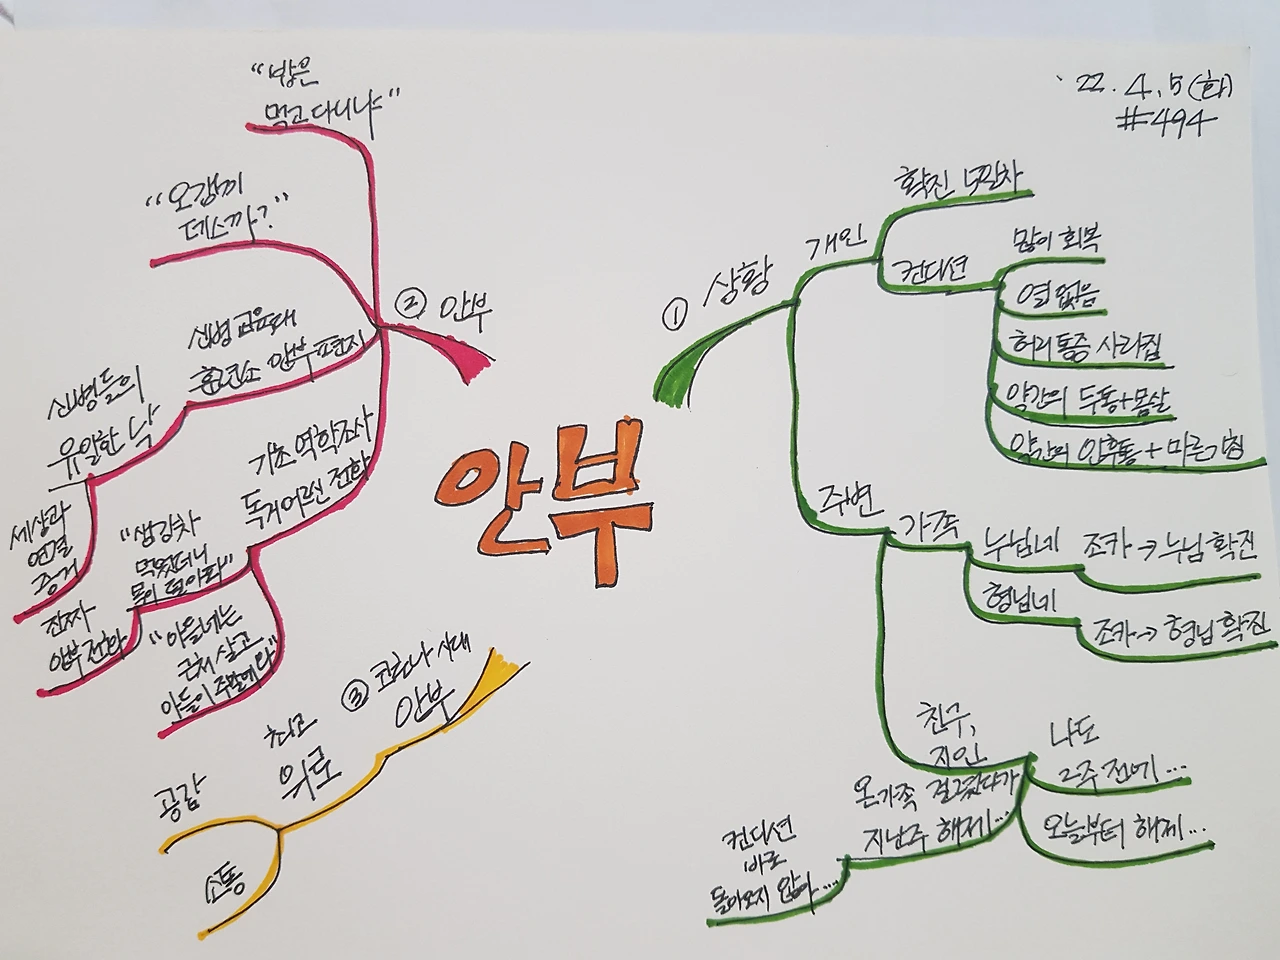 '22. 4. 5 (화)
#494
안부
① 상황
개인
확진 5일차
컨디션
많이 회복
열 없음
허리통증 사라짐
약간의 두통+몸살
약간의 인후통 + 마른기침
주변
가족
누님네
조카→누님 확진
형님네
조카→형님 확진
친구,
지인
나도
2주 전에...
오늘부터 해제...
온가족 걸렸다가
지난주 해제...
컨디션
바로
돌아오지 않아...
② 안부
"밥은
먹고 다니냐"
"오갱끼
데스까?"
신병 교육대
훈련소 안부 편지
신병들의
유일한 낙
세상과
연결
증거
기초 역학조사
독거어르신 전화
"생강차
먹었더니
목이 덜 아파"
진짜
안부 전화
"아들네는
근처 살고
아들이 주말에 와"
③ 코로나 시대
안부
최고
위로
공감
소통